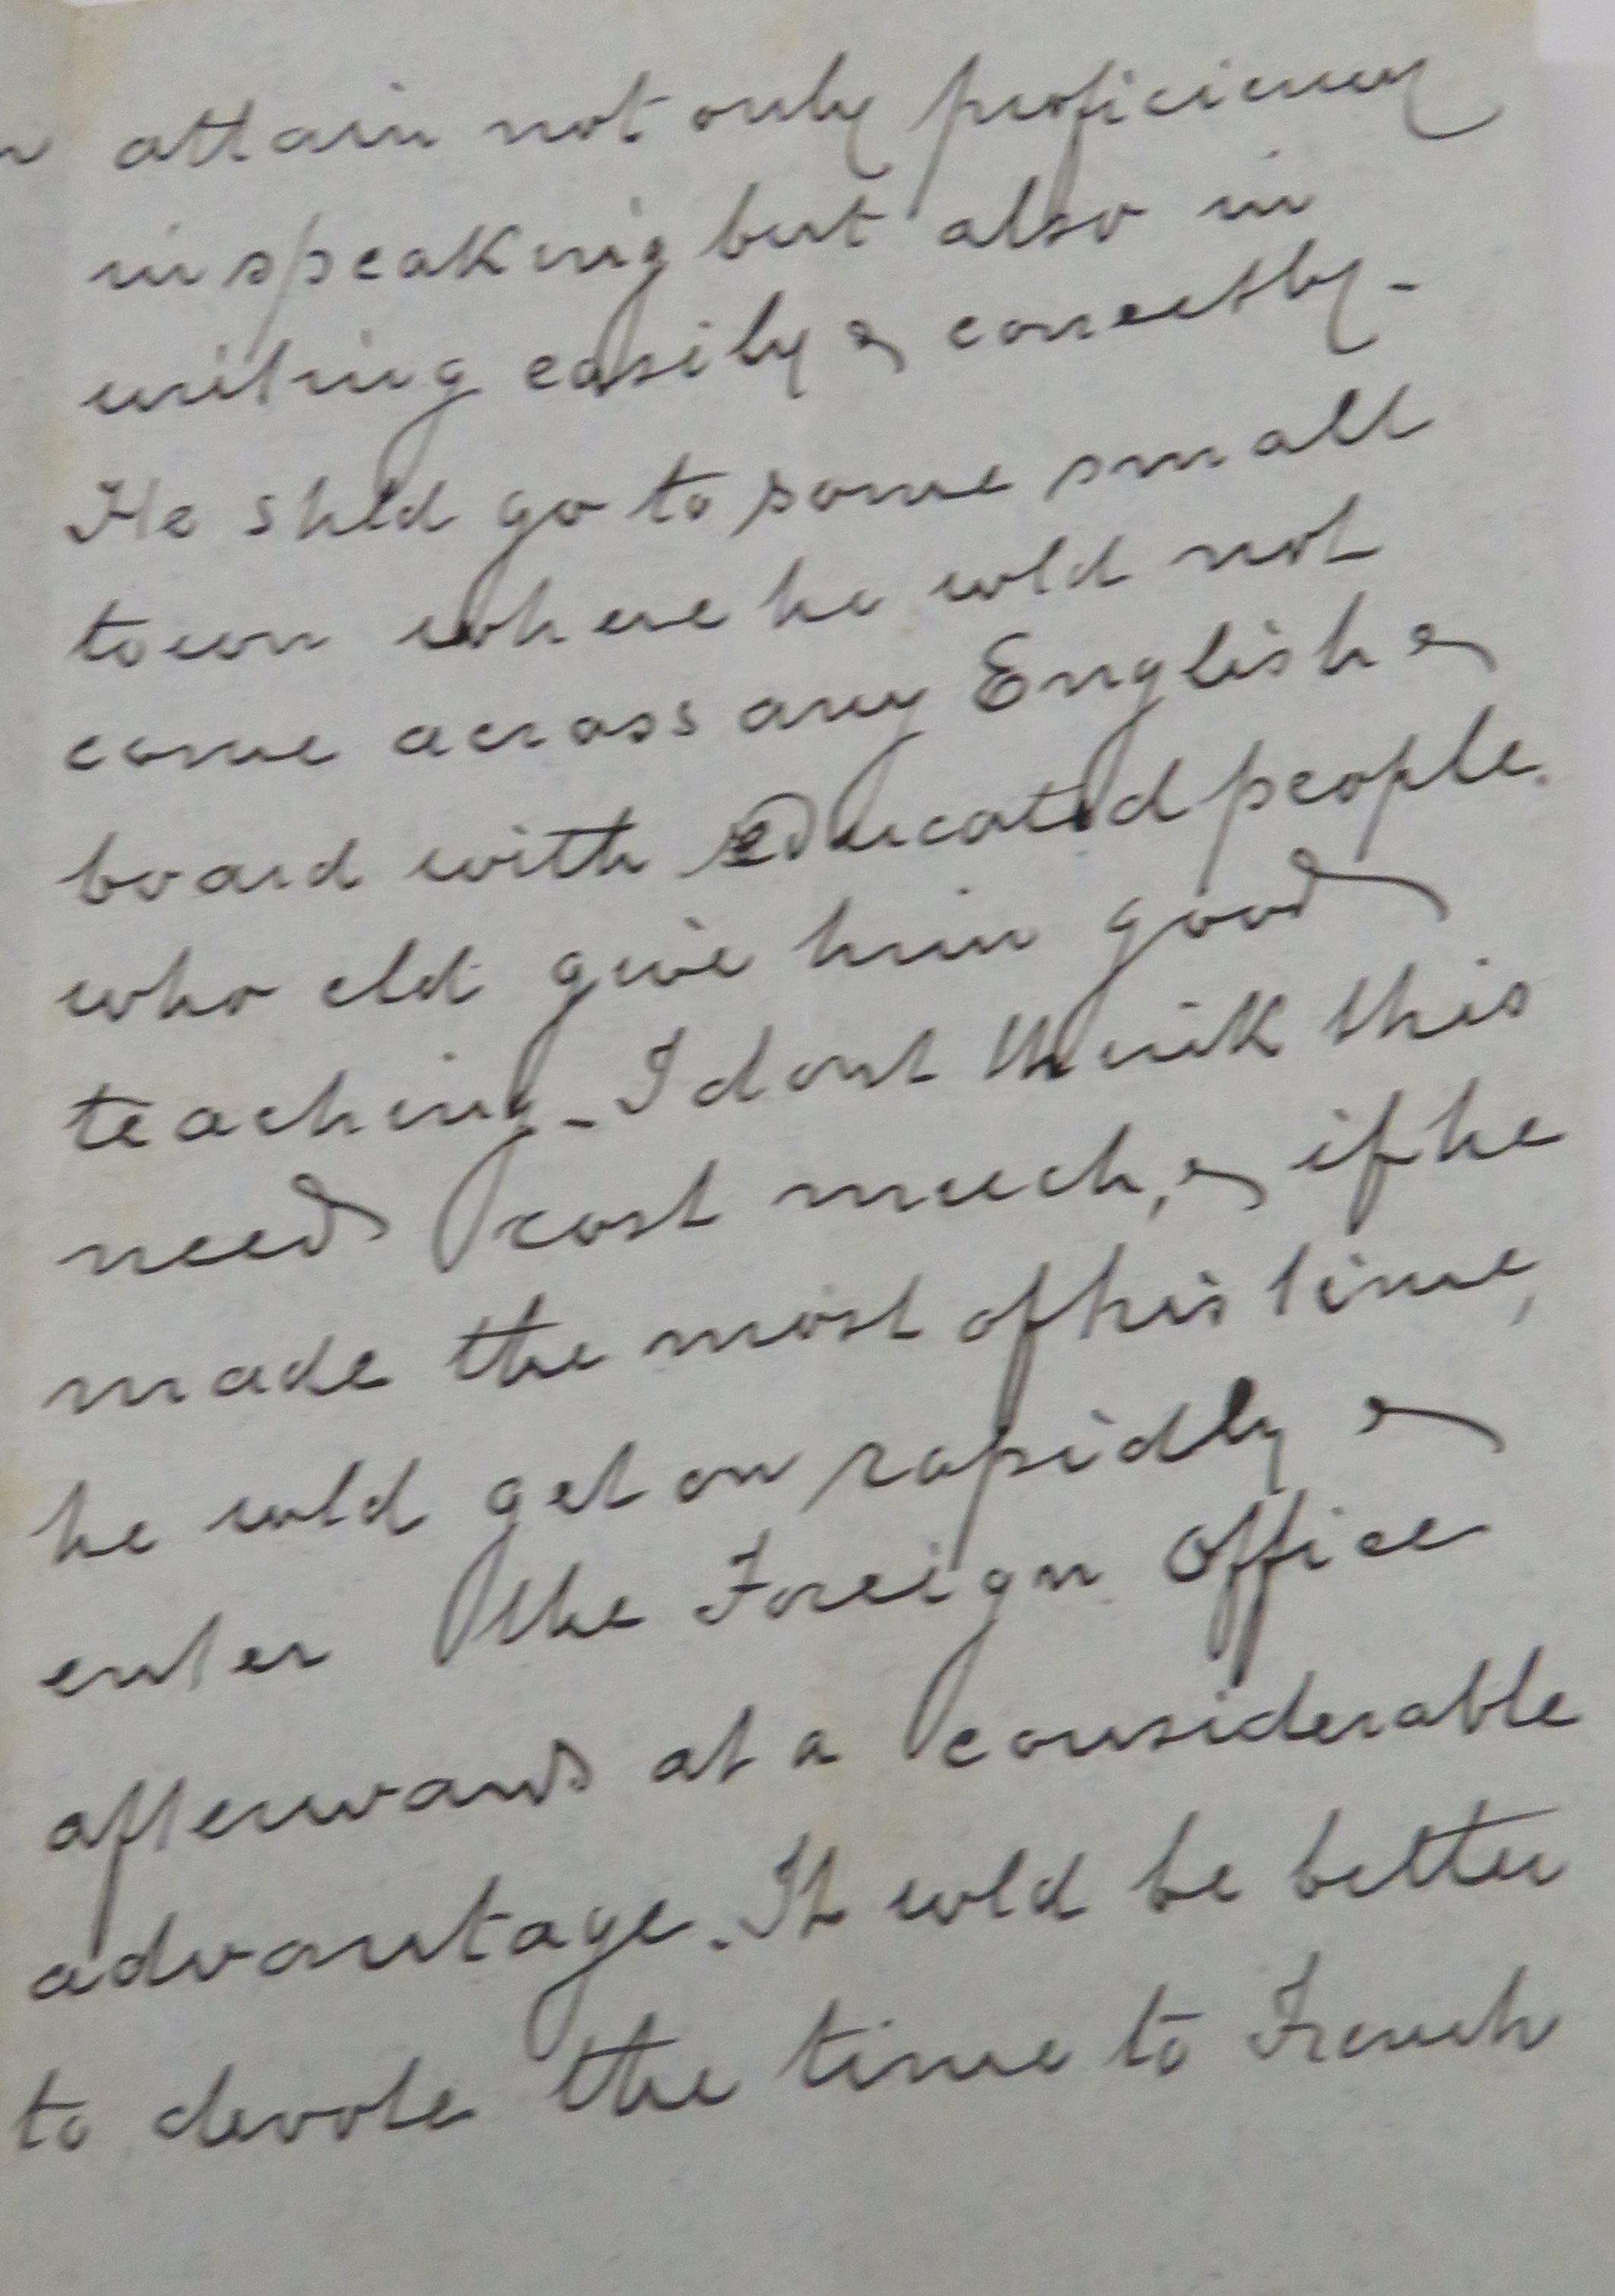 attain not only proficiency
in speaking but also in
writing easily & correctly -
He shld go to some small
town where he wld not
come across any English &
board with educated people
who cld give him good
teaching - I dont think this
need cost much, & if he
made the most of his time,
he wld get on rapidly &
enter the Foreign Office
afterwards at a considerable
advantage. It wld be better
to devote the time to French